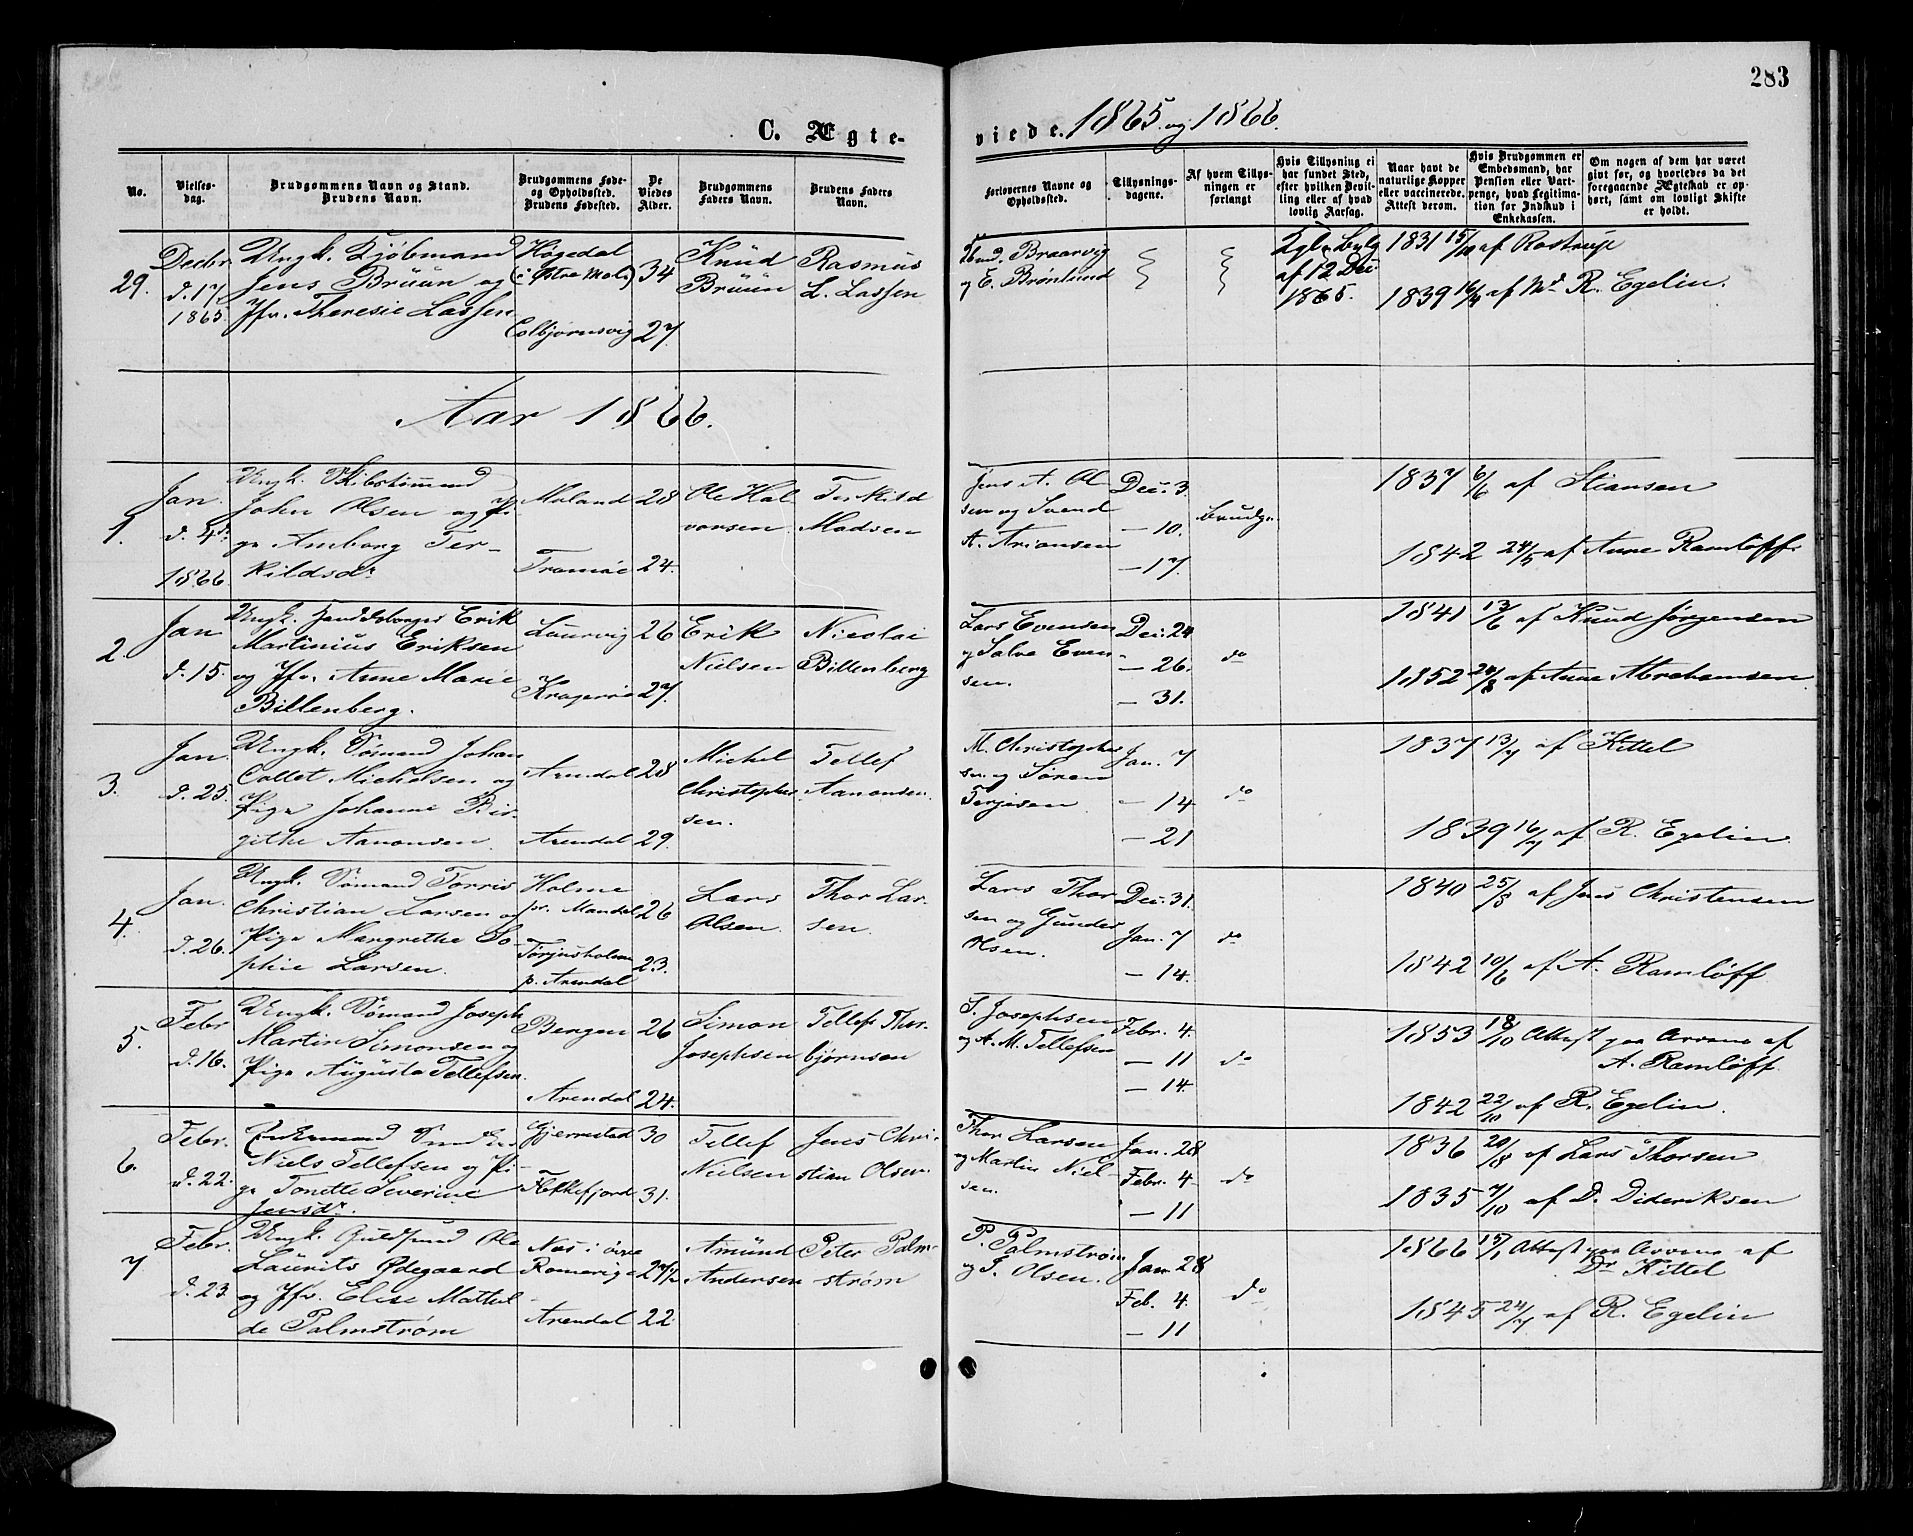 283
C. Ægte-
viede. 1865 og 1866.
No.
Vielses-
dag.
Brudgommens Navn og Stand.
Brudens Navn.
Brudgommens Føde-
og Opholdssted.
Brudens Fødested.
De
Viedes
Alder.
Brudgommens
Faders Navn.
Brudens Faders
Navn.
Forlovernes Navne og
Opholdssted.
Tillysnings-
dagene.
Af hvem Tillys-
ningen er
forlangt
Hvis Tillysning ei
har fundet Sted,
efter hvilken Bevil-
ling eller af hvad
lovlig Aarsag.
Naar havt de
naturlige Kopper
eller vaccinerede.
Attest derom.
Hvis Brudgommen er
Embedsmand, har
Pension eller Vart-
penge, hvad Legitima-
tion for Indskud i
Enkekassen.
Om nogen af dem har været
givt før, og hvorledes da det
foregaaende Ægteskab er op-
hørt, samt om lovligt Skifte
er holdt.
29.
Decbr.
d. 17.
1865.
Ungk. Kjøbmand
Jens Brüün og
Jfr. Theresie Lassen
Høgedal
(i Østre Mol.)
Colbjørnsvig
34
27.
Knüd
Brüün
Rasmus
L. Lassen
Braarvig
og E. Brønlund
Kgl. Bvlg
af 12 Dec
1865.
1831 15/10 af Rostrup
1839 16/7 af Md. R. Egelin.
Aar 1866.
1.
Jan.
d. 4de
1866.
Ungk. Skibstømmd
John Olsen og Pi-
ge Amborg Ter-
kildsdr
Moland
Tromöe
28
24.
Ole Hal
vorsen
Terkild
Madsen
Jens A. Ol
sen og Svend
A. Ariansen
Dec. 3.
— 10.
— 17.
Brudg.
1837 6/6 af Stiansen
1842 24/5 af Anne Ramløff.
2.
Jan.
d. 15.
Ungk. Handelsborger Erik
Martinius Eriksen
og Jfr. Anne Marie
Billenberg.
Laurvig
Kragerøe
26
27.
Erik
Nielsen
Nicolai
Billenberg
Lars Evensen
og Salve Even-
sen.
Dec. 24
— 26.
— 31.
do
1841 13/6 af Knud Jørgensen
1852 24/8 af Anne Abrahamsen
3.
Jan.
d. 25.
Ungk. Sømand Johan
Collet Michelsen og
Pige Johanne Bir-
githe Aanonsen.
Arendal
Arendal
28
29.
Michel
Christophe
sen.
Tellef
Aanonsen.
M. Christophe
sen og Søren
Terjesen
Jan. 7
— 14
— 21
do
1837 13/7 af Kittel
1839 16/7 af R. Egelin
4.
Jan.
d. 26.
Ungk. Sømand Torris
Christian Larsen og
Pige Margrethe So-
phie Larsen.
Holme
pr. Mandal
Torjusholmen
p. Arendal
26
23.
Lars
Olsen
Thor Lar-
sen.
Lars Thor
sen og Gunder
Olsen.
Dec. 31.
Jan. 7
— 14.
do
1840 25/8 af Jens Christensen
1842 10/6 af A. Ramløff
5.
Febr.
d. 16.
Ungk. Sømand Joseph
Martin Simonsen og
Pige Augusta Tellefsen.
Bergen
Arendal
26
24.
Simon
Josephsen
Tellef Thor-
bjørnsen
S. Josephsen
og A. M. Tellefsen
Febr. 4.
— 11
— 14.
do
1853 18/10 Attest af
A. Ramløff.
1842 22/10 af R. Egelin.
6.
Febr.
d. 22.
Niels Tellefsen og Pi-
ge Tonette Severine
Jensdr.
Gjerrestad
Flekkefjord
30
31.
Tellef
Nielsen
Jens Chri-
stian Olsen
Thor Larsen
og Martin Niel-
sen.
Jan. 28
Febr. 4
— 11
do
1836 20/8 af Lars Thorsen
1835 7/10 af D. Dideriksen
7
Febr.
d. 23.
Ungk. Guldsmd Ole
Laurits Ødegaard
og Jfr. Elise Mathil-
de Palmstrøm
Næs i øvre
Romerige
Arendal
27 1/2
22
Amünd
Andersen
Peter Palm-
strøm
P. Palmstrøm
og P. Olsen.
Jan. 28
Feb. 4.
— 11
do
1866 15/1 Attest af
Dr. Kittel
1845 24/7 af R. Egelin